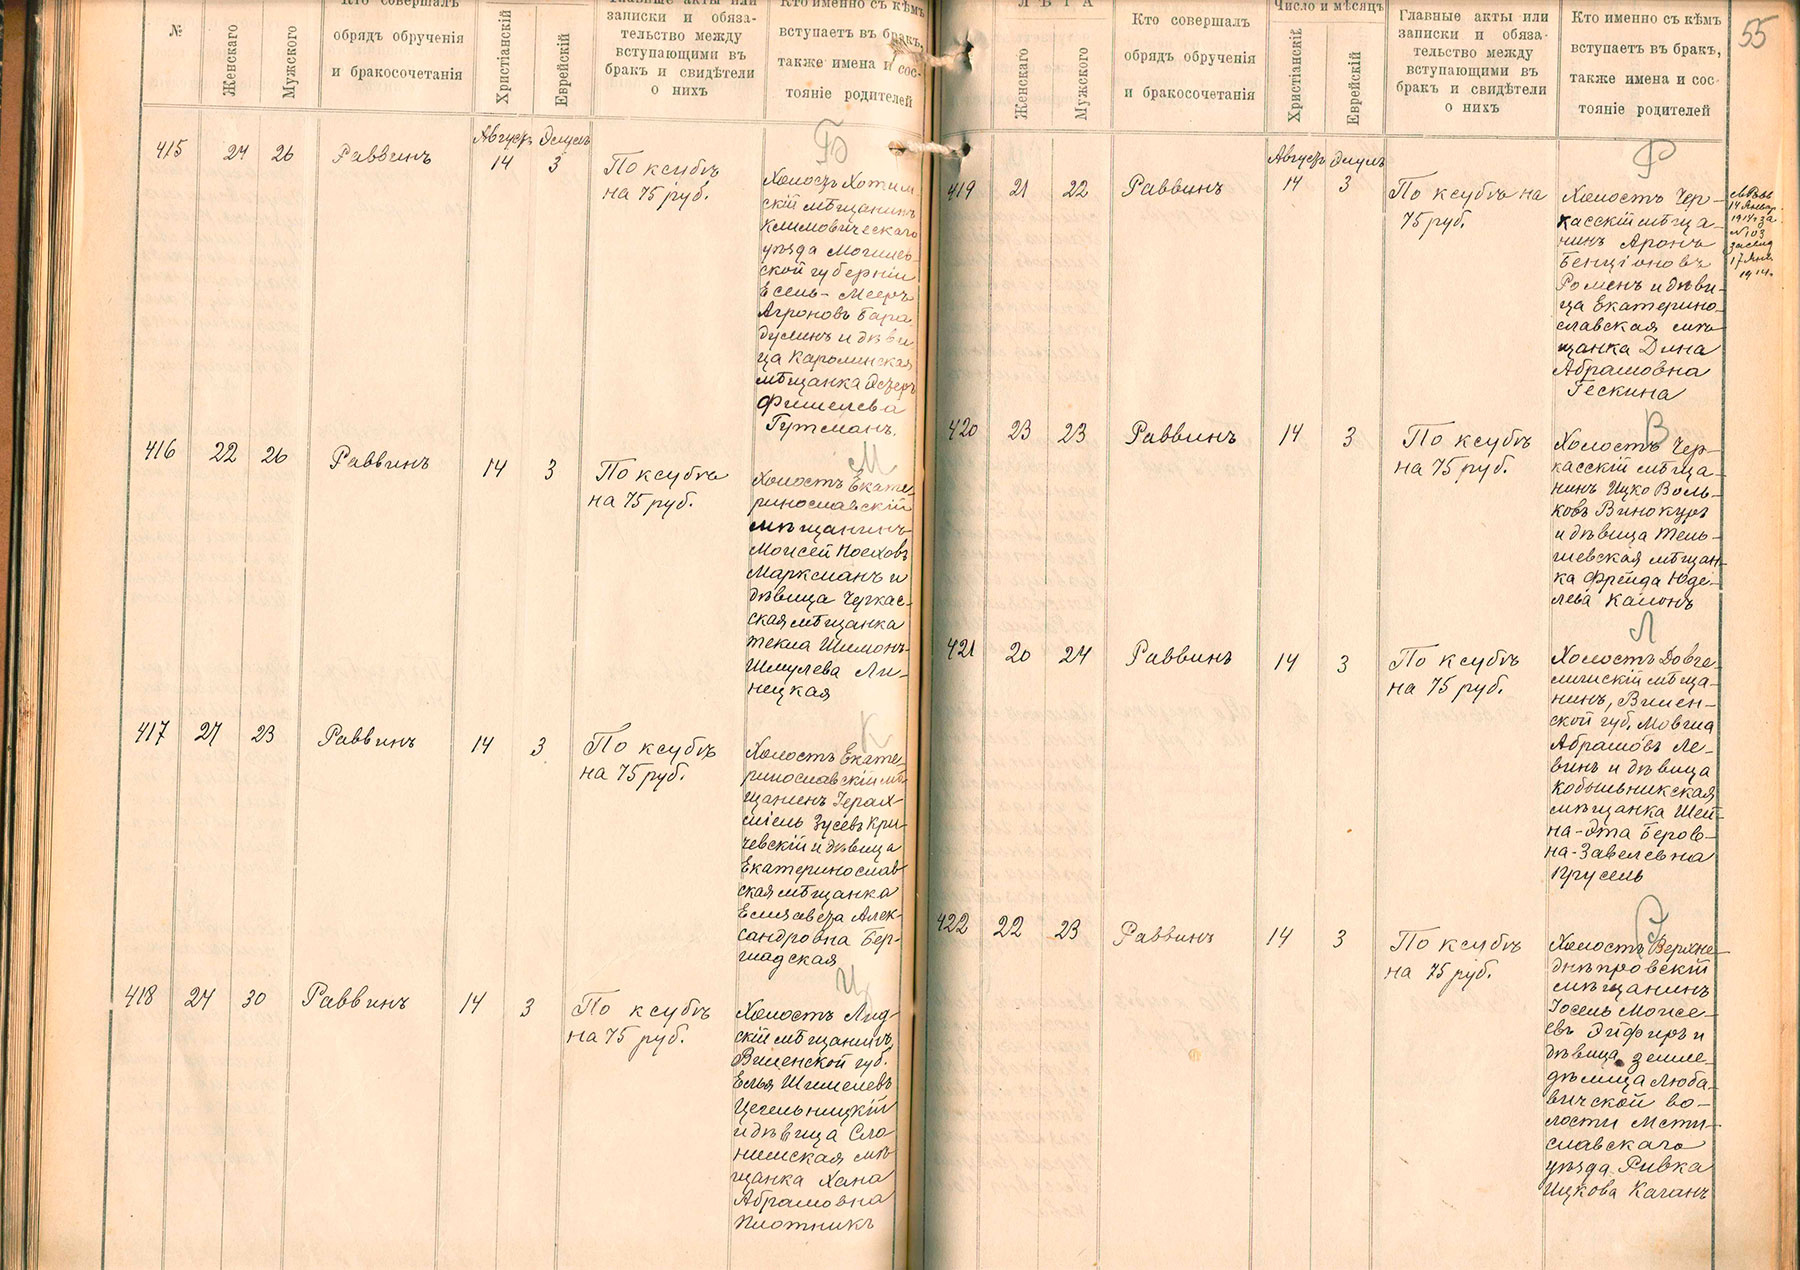 №
Женскаго
Мужского
Кто совершалъ
обрядъ обрученія
и бракосочетанія
Христіанскій
Еврейскій
Главные акты или
записки и обяза-
тельство между
вступающими въ
бракъ и свидѣтели
о нихъ
Кто именно съ кѣмъ
вступаетъ въ бракъ,
также имена и сос-
тояніе родителей
415
24
26
Раввинъ
Августъ Элулъ
14
3
По ксубѣ
на 75 руб.
Б
Холостъ Хотим
скій мѣщанинъ
Климовическаго
уѣзда Могилев
ской губерніи
Есель-Мееръ
Агроновъ Бара
дулинъ и дѣви
ца Каролинская
мѣщанка Эстеръ
Фишелева
Гутманъ.
416
22
26
Раввинъ
14
3
По ксубѣ
на 75 руб.
М
Холостъ Екате-
ринославскій
мѣщанинъ
Моисей Носиховъ
Марксманъ и
дѣвица Черкас-
ская мѣщанка
Текла Шимонъ-
Шмулева Ли-
нецкая
417
21
23
Раввинъ
14
3
По ксубѣ
на 75 руб.
К
Холостъ Екате-
ринославскій мѣ-
щанинъ Іерах-
міель Зусевъ Кри-
чевскій и дѣвица
Екатеринослав
ская мѣщанка
Елизавета Алек-
сандровна Бер-
шадская
418
24
30
Раввинъ
14
3
По ксубѣ
на 75 руб.
Ц
Холостъ Лид-
скій мѣщанинъ,
Виленской губ.
Елья Шимелевъ
Цегельницкій
и дѣвица Сло
нимская мѣ-
щанка Хана
Абрамовна
Плотникъ
55
ЛѢТА
Женскаго
Мужского
Кто совершалъ
обрядъ обрученія
и бракосочетанія
Число и мѣсяцъ
Христіанскій
Еврейскій
Главные акты или
записки и обяза-
тельство между
вступающими въ
бракъ и свидѣтели
о нихъ
Кто именно съ кѣмъ
вступаетъ въ бракъ,
также имена и сос-
тояніе родителей
419
21
22
Раввинъ
Августъ Элулъ
14
3
По ксубѣ на
75 руб.
Р
Холостъ Чер-
касскій мѣща-
нинъ Аронъ
Бенціоновъ
Роменъ и дѣви-
ца Екатерино-
славская мѣ-
щанка Дина
Абрамовна
Гескина
14 Январ.
1914 г. за
№ 103
17 Янв
1914 г.
420
23
23
Раввинъ
14
3
По ксубѣ
на 75 руб.
В
Холостъ Чер-
касскій мѣща-
нинъ Ицко Воль-
ковъ Винокуръ
и дѣвица Тель-
шевская мѣщан-
ка Фрейда Юде-
лева Калонъ
421
20
24
Раввинъ
14
3
По ксубѣ
на 75 руб.
Л
Холостъ Довге-
лишскій мѣща-
нинъ, Вилен-
ской губ. Мовша
Абрамовъ Ле-
винъ и дѣвица
Кобыльникская
мѣщанка Шей-
на-Эта Беров-
на-Завелевна
Крусель
422
22
23
Раввинъ
14
3
По ксубѣ
на 75 руб.
Э
Холостъ Верхне-
днѣпровскій
мѣщанинъ
Іосель Моисе-
евъ Эйфиръ и
дѣвица земле-
дѣлица Люба-
вичской во-
лости Мсти-
славскаго
уѣзда Ривка
Ицкова Каганъ